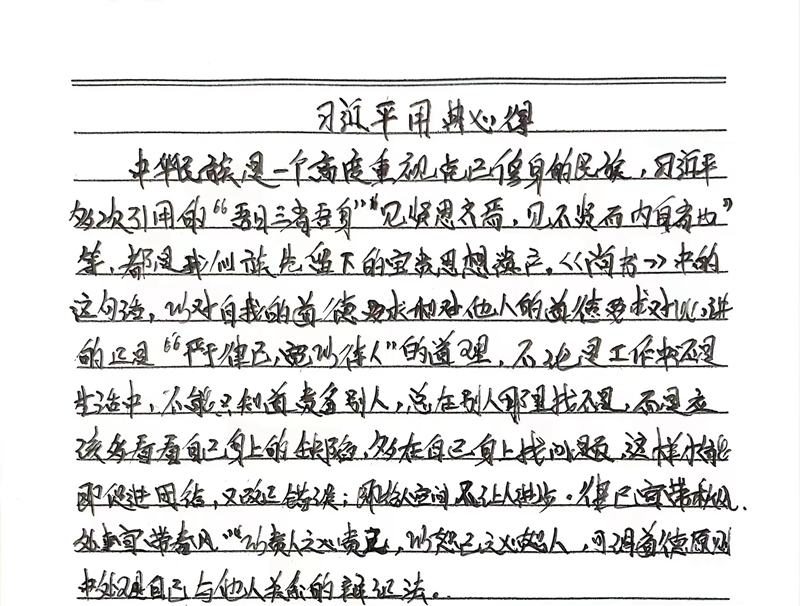 习近平用典心得
中华民族是一个高度重视克己修身的民族，习近平
多次引用的“吾日三省吾身”“见贤思齐焉，见不贤而内自省也”
等，都是我们族先留下的宝贵思想遗产。《尚书》中的
这句话，以对自我的道德要求和对他人的道德要求对比，讲
的正是“严于律己，宽以待人”的道理，不论是工作中还是
生活中，不能只知道责备别人，总在别人那里找不是，而是应
该多看看自己身上的缺陷，多在自己身上找问题 这样做能
即促进团结，又改正错误；即给人空间 又让人进步。律己宜带秋风，
处事宜带春风”“以责人之心责己，以恕己之心恕人，可谓道德原则
中处理自己与他人关系的辩证法。